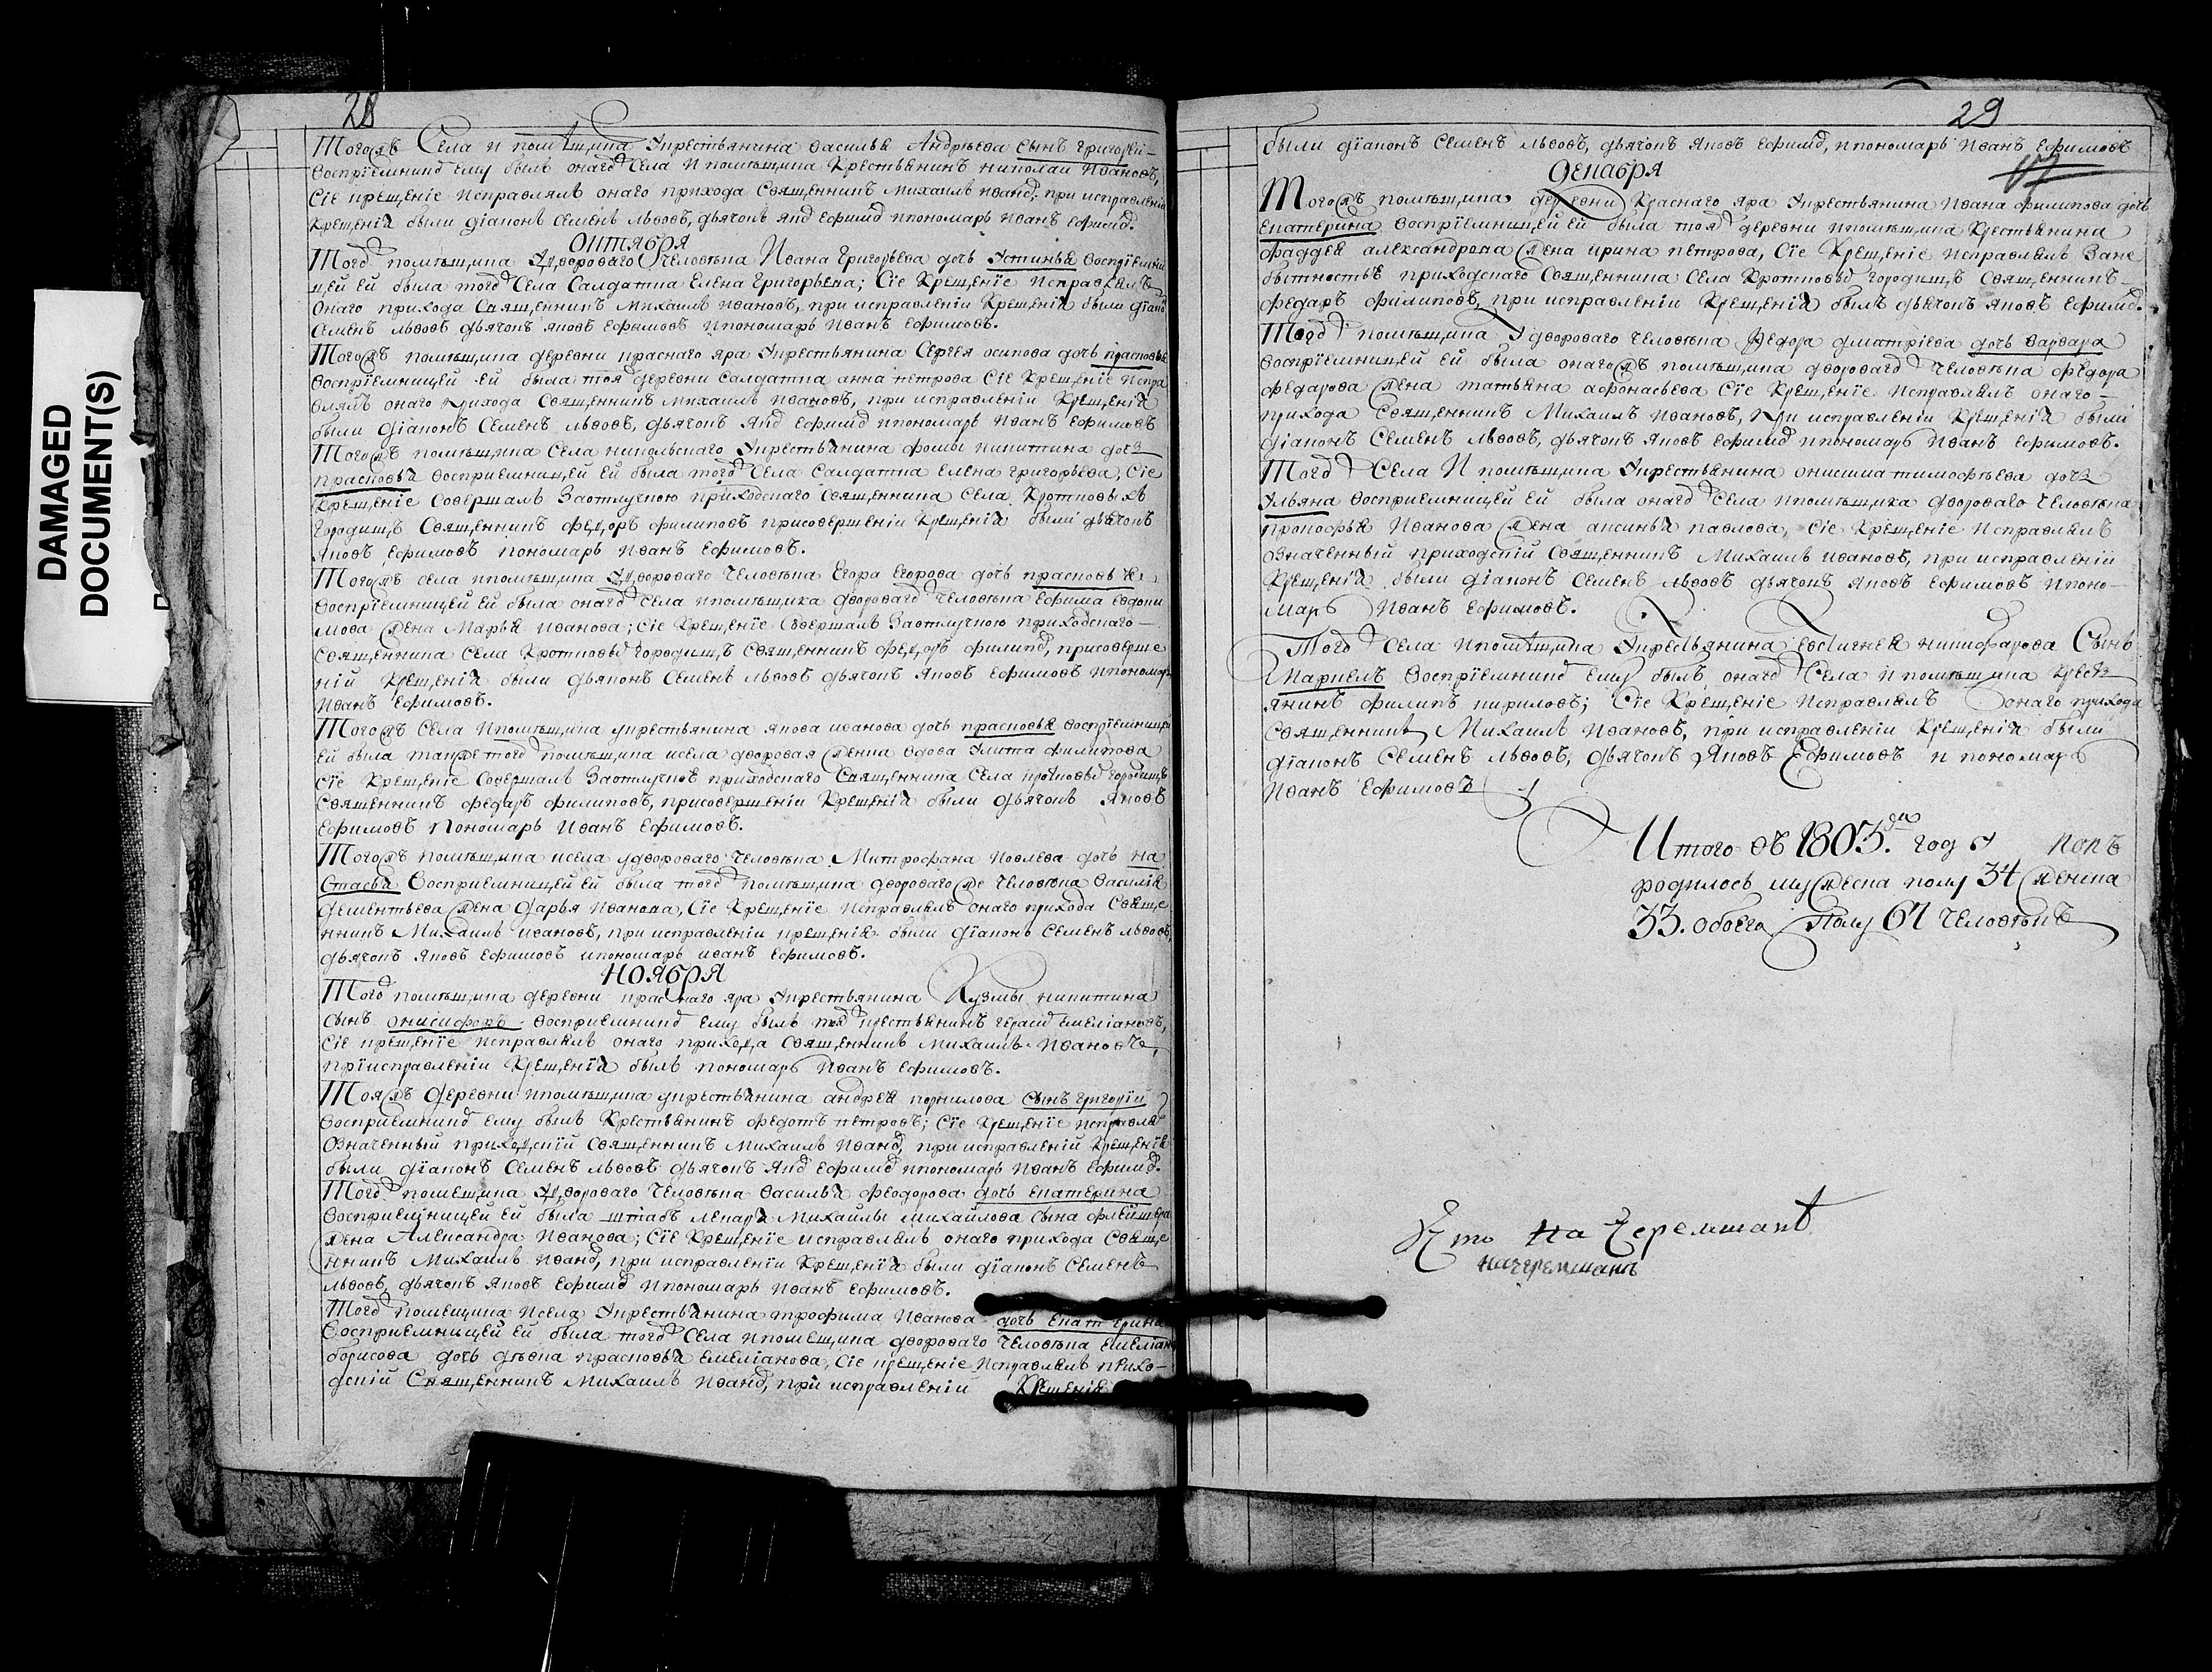 DAMAGED
DOCUMENT(S)
28
Тогожъ Села и помѣщика Укрестьянина Василья Андрѣева Сынъ Григорей
Восприемникъ ему былъ онагожъ Села и помѣщика Крестьянинъ николаи Ивановъ,
Сіе крещеніе исправлялъ онаго прихода Священникъ Михаилъ иванъ, при исправленіи
Крещенія были діаконъ Семенъ львовъ, дьячокъ яковъ Ефимовъ ипономарь иванъ Ефимовъ.
Октября
Тогожъ помѣщика Удвороваго Человѣка Ивана Григорьева дочь Устинья Восприемни
цей ей была тогожъ Села Салдатка Елена Григорьева; Сіе Крещеніе исправлялъ
Онаго прихода Священникъ Михаилъ ивановъ, при исправленіи Крещенія были діаконъ
Семенъ львовъ дьячокъ яковъ Ефимовъ ипономарь Иванъ Ефимовъ.
Тогожъ помѣщика деревни краснаго яра Укрестьянина Сергея осипова дочь прасковья
Восприемницей ей была тоя деревни Салдатка анна петрова Сіе Крещеніе испра
влялъ онаго прихода Священникъ михаилъ ивановъ, при исправленіи Крещенія
были діаконъ Семенъ львовъ, дьячокъ яковъ Ефимовъ ипономарь иванъ Ефимовъ
Тогожъ помѣщика Села никольскаго Укрестьянина фомы никитина дочь
прасковья Восприемницей ей была тогожъ Села Салдатка Елена григорьева, Сіе
Крещеніе Совершалъ Заотлучкою приходскаго Священника Села Кротковыхъ
Городищъ Священникъ федоръ филиповъ присовершеніи Крещенія были дьячокъ
Яковъ Ефимовъ пономарь иванъ Ефимовъ.
Тогожъ села ипомѣщика Удвороваго Человѣка Егора Егорова дочь прасковья
Восприемницей ей была онагожъ Села ипомѣщика двороваго Человѣка Ефима Евдоки
мова Жена Марья иванова; Сіе Крещеніе Совершалъ Заотлучкою приходскаго
Священника Села Кротковыхъ городищъ Священникъ федоръ филиповъ, присоверше
ніи Крещенія были дьяконъ Семенъ львовъ дьячокъ яковъ Ефимовъ ипономарь
Иванъ Ефимовъ.
Тогожъ Села Ипомѣщика укрестьянина якова иванова дочь прасковья Восприемницей
ей была также тогожъ помѣщика исела дворовая Женка вдова Улита филипова
Сіе Крещеніе Совершалъ Заотлучкою приходскаго Священника Села кротковыхъ городищъ
Священникъ федоръ филиповъ, присовершеніи Крещенія были дьячокъ яковъ
Ефимовъ пономарь Иванъ Ефимовъ.
Тогожъ помѣщика исела удвороваго Человѣка Митрофана Иовлева дочь на
Стасья Восприемницей ей была тогожъ помѣщика двороваго же Человѣка Василія
Дементьева Жена Дарья Иванова, Сіе Крещеніе исправлялъ онаго прихода Свяще
нникъ Михаилъ ивановъ, при исправленіи крещенія были діаконъ Семенъ львовъ,
дьячокъ яковъ Ефимовъ ипономарь иванъ Ефимовъ.
Ноября
Тогожъ помѣщика деревни краснаго яра Укрестьянина Кузмы никитина
Сынъ онисифоръ Восприемникъ ему былъ крестьянинъ герасимъ Емеліановъ,
Сіе крещеніе исправлялъ онаго прихода Священникъ Михаилъ Ивановъ,
приисправленіи Крещенія былъ пономарь Иванъ Ефимовъ.
Тояжъ Деревни ипомѣщика укрестьянина андрея корнилова Сынъ григорій
Восприемникъ ему былъ Крестьянинъ федотъ петровъ; Сіе Крещеніе исправлялъ
Означенный приходскій Священникъ Михаилъ Иванъ, при исправленіи Крещенія
были діаконъ Семенъ львовъ дьячокъ яковъ Ефимовъ ипономарь Иванъ Ефимовъ.
Тогожъ помещика Удвороваго Человѣка Василья феодорова дочь Екатерина
Восприемницей ей была штабъ лекаря Михайлы михайлова Сына
Жена Александра Иванова; Сіе Крещеніе исправлялъ онаго прихода Свяще
нникъ Михаилъ Иванъ, при исправленіи Крещенія были діаконъ Семенъ
львовъ, дьячокъ яковъ Ефимовъ ипономарь Иванъ Ефимовъ.
Тогожъ помещика исела Укрестьянина трофима Иванова дочь Екатерина
Восприемницей ей была тогожъ Села ипомещика двороваго Человѣка Емеліана
борисова дочь дѣвка прасковья Емеліанова, Сіе крещеніе исправлялъ прихо-
дскій Священникъ Михаилъ Иванъ, при исправленіи Крещенія
29
были діаконъ Семенъ львовъ, дьячокъ яковъ Ефимовъ, ипономарь Иванъ Ефимовъ
Декабря
Тогожъ помѣщика деревни Краснаго яра Укрестьянина Ивана филипова дочь
Екатерина Восприемницей ей была тояжъ деревни ипомѣщика Крестьянина
фаддея александрова Жена ирина петрова, Сіе Крещеніе исправлялъ Зане
бытностью приходскаго Священника Села Кротковыхъ городищъ Священникъ
федаръ филиповъ, при исправленіи Крещенія былъ дьячокъ яковъ Ефимовъ.
Тогожъ помѣщика Удвороваго Человѣка Федора дмитріева дочь Варвара
Восприемницей ей была онагожъ помѣщика двороваго Человѣка федора
федарова Жена татьяна афонасьева Сіе Крещеніе исправлялъ онаго
прихода Священникъ Михаилъ ивановъ, при исправленіи Крещенія были
діаконъ Семенъ львовъ, дьячокъ яковъ Ефимовъ ипономарь Иванъ Ефимовъ.
Тогожъ Села И помѣщика Укрестьянина онисима тимофѣева дочь
Ульяна Восприемницей ей была онагожъ Села ипомѣщика двороваго Человѣка
прокофья Иванова Жена аксинья павлова, Сіе Крещеніе исправлялъ
Означенный приходскій Священникъ Михаилъ ивановъ, при исправленіи
Крещенія были діаконъ Семенъ львовъ дьячокъ яковъ Ефимовъ ипоно-
марь Иванъ Ефимовъ.
Тогожъ Села Ипомѣщика Укрестьянина Евстигнея никифарова Сынъ
Маркелъ Восприемникъ ему былъ онагожъ Села ипомѣщика Крестъ
янинъ филипъ кириловъ; Сіе Крещеніе исправлялъ онаго прихода
Священникъ Михаилъ Ивановъ, при исправленіи Крещенія были
діаконъ Семенъ львовъ, дьячокъ Яковъ Ефимовъ и пономарь
Иванъ Ефимовъ
Итого въ 1803. год
родилось мужеска полу 34 женска
33. обоего полу 67 человѣкъ
Что на Черемшанѣ
начеремшанѣ